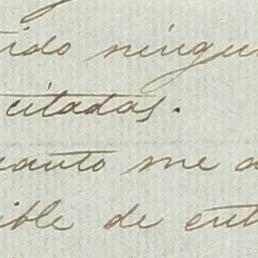 ido ningu
citadas.
uanto me a
ible de ent